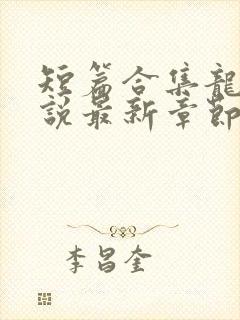 短篇合集龍
說最新章節
李昌奎